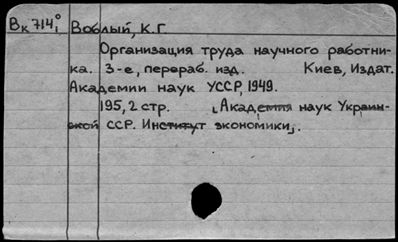 Вк 714i° Воблый, К.Г
Организация труда научного работни-
ка. 3-е, перераб. изд. Киев, Издат.
Академии наук УССР, 1949.
195, 2 стр. (Академия наук Украин-
ской ССР. Институт экономики).